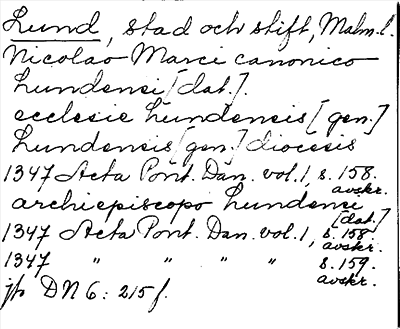 Lund, stad och stift, Malm. l.
Nicolao Marci canonico
Lundensi [dat.].
ecclesie Lundensis [gen.]
Lundensis [gen.] diocesis
1347 Acta Pont. Dan. vol. 1, s. 158.
avskr.
archiepiscopo Lundensi
[dat.]
1347 Acta Pont. Dan. vol. 1, s. 158.
avskr.
1347 " " " " s. 159.
avskr.
jfr DN 6: 215 f.